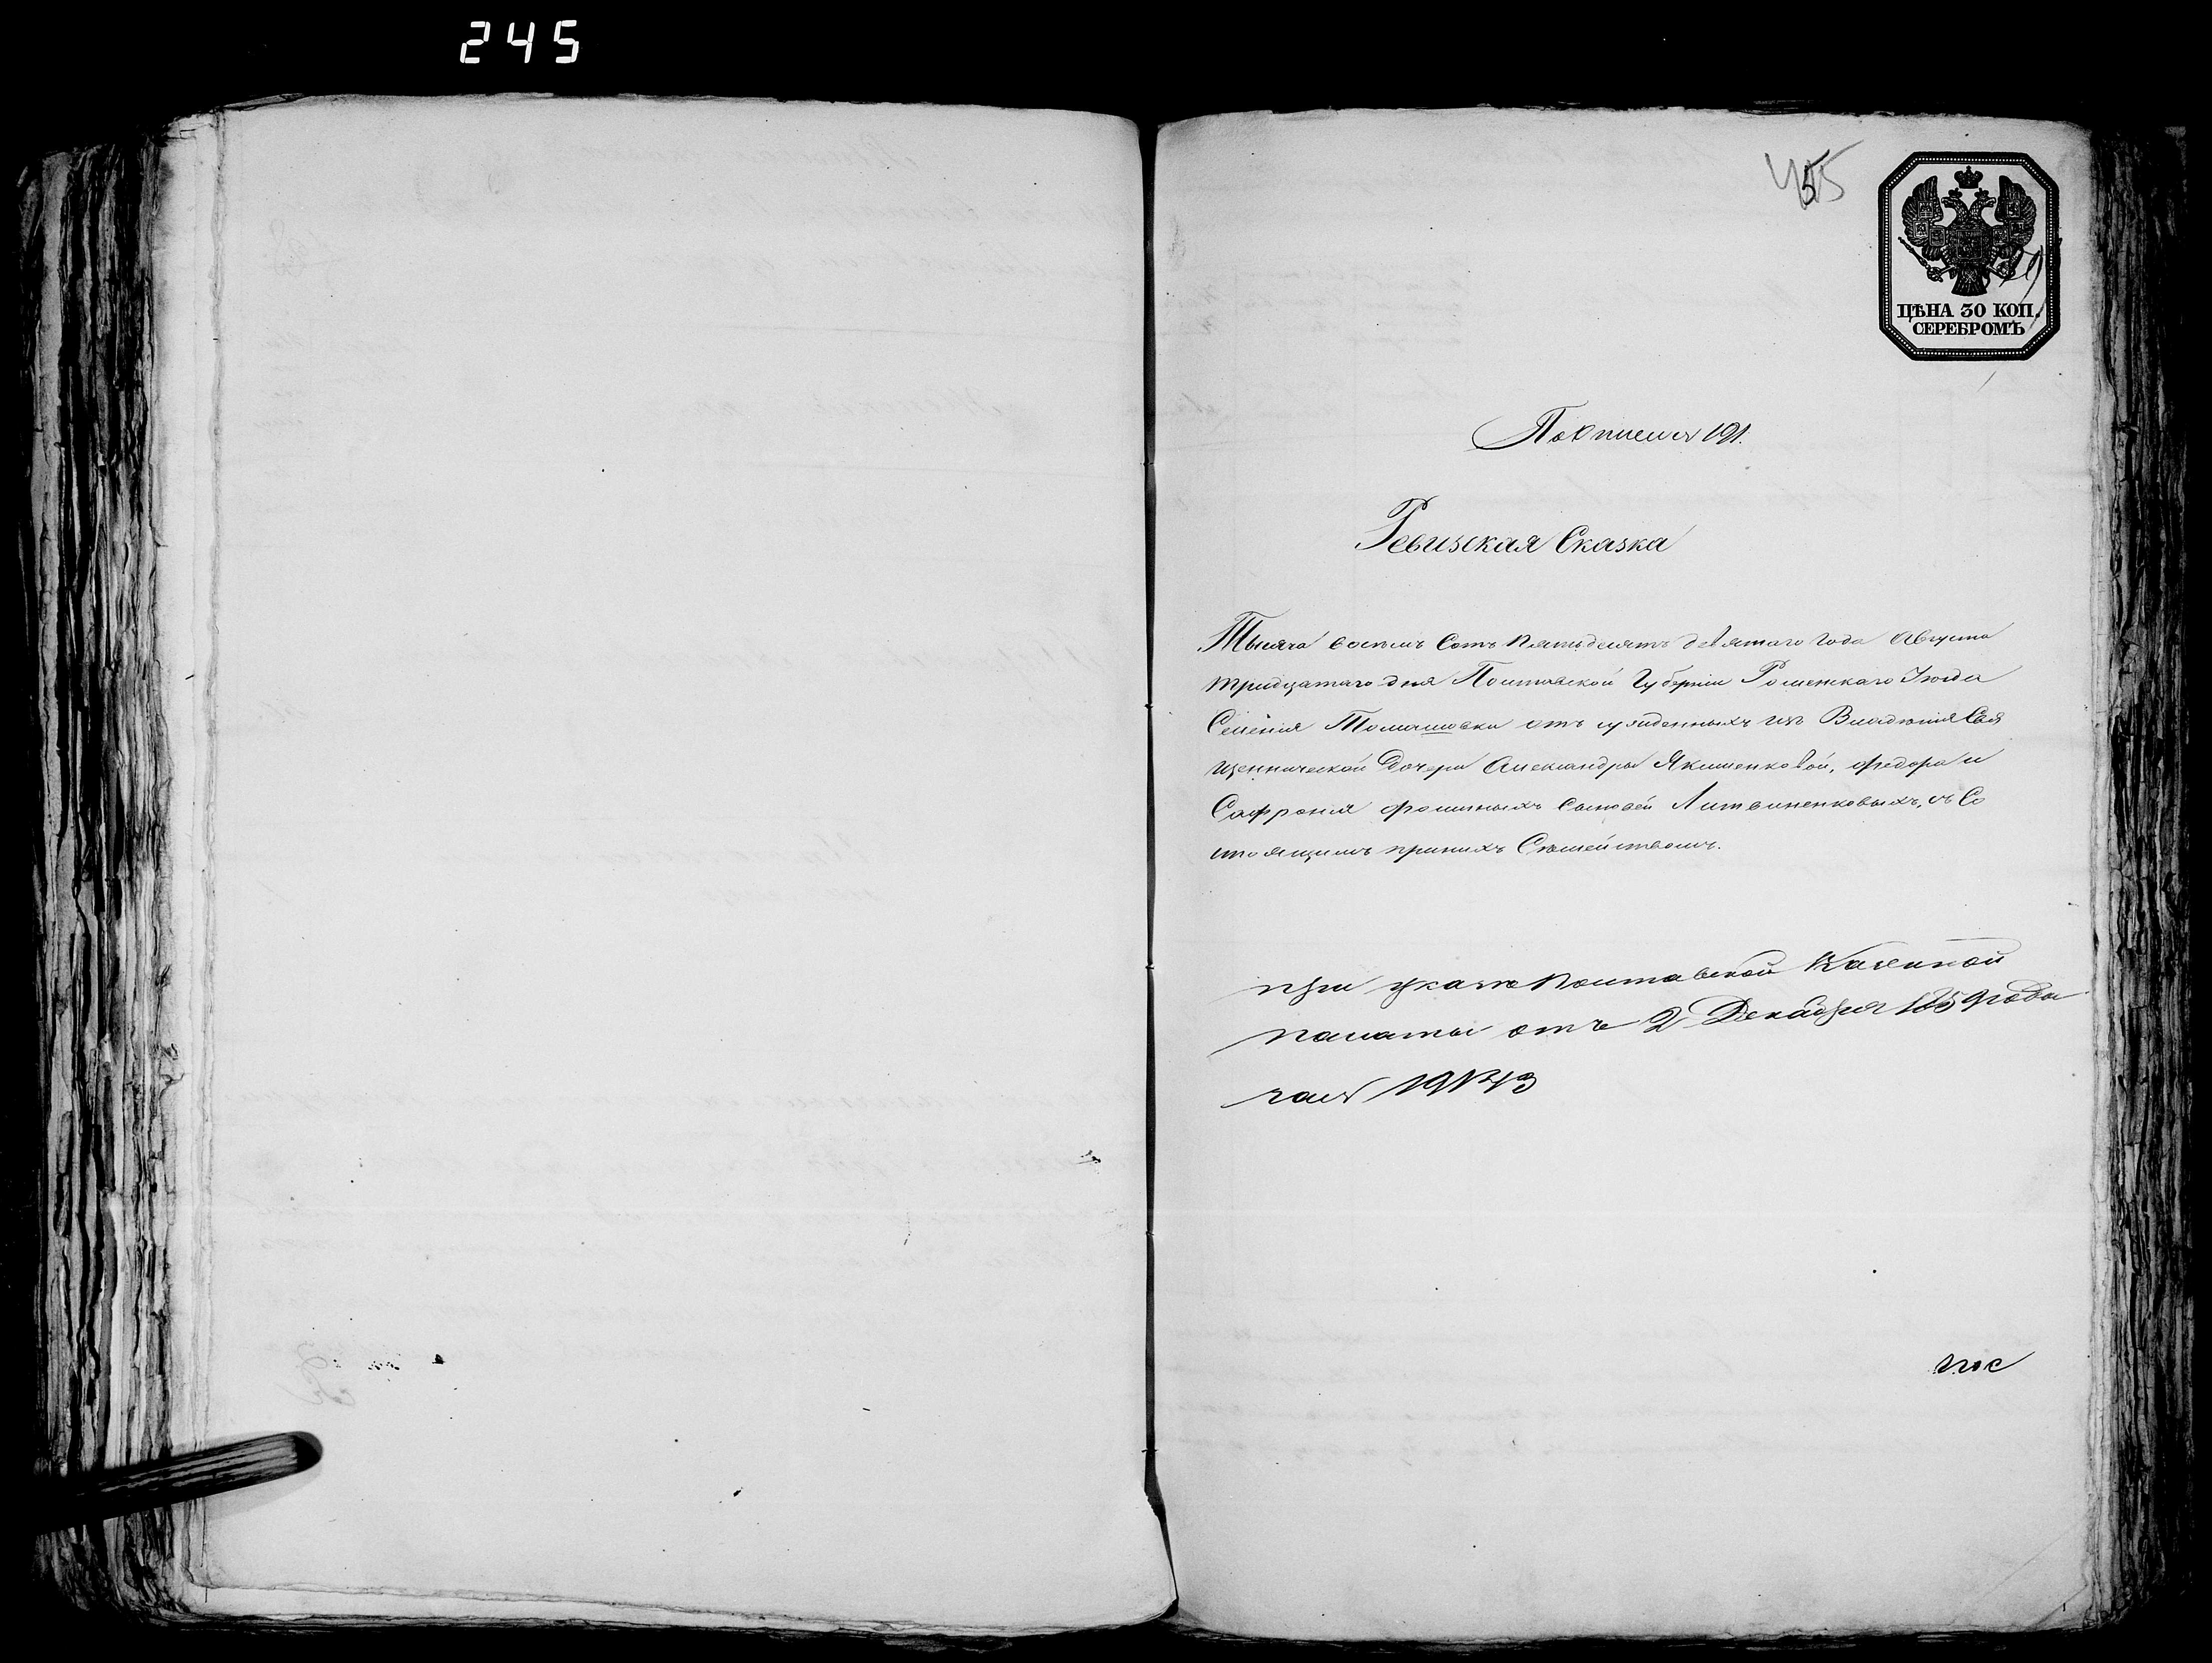 245
455
ЦѢНА 30 КОП.
СЕРЕБРОМЪ
По описи 191.
Ревизская Сказка
Тысяча восемь Сотъ пятьдесятъ девятаго года Августа
тридцатаго дня Полтавской Губерніи Роменскаго Уезда
Селенія Томашовки отъ из Владенія Свя
щеннической Дочери Александры Якименковой, Федора и
Сафронія Фоминыхъ Сыновей Литвиненковыхъ, съ Со
стоящимъ принихъ Семействомъ.
при указе Полтавской Казенной
палаты отъ 2 Декабря 1859 года